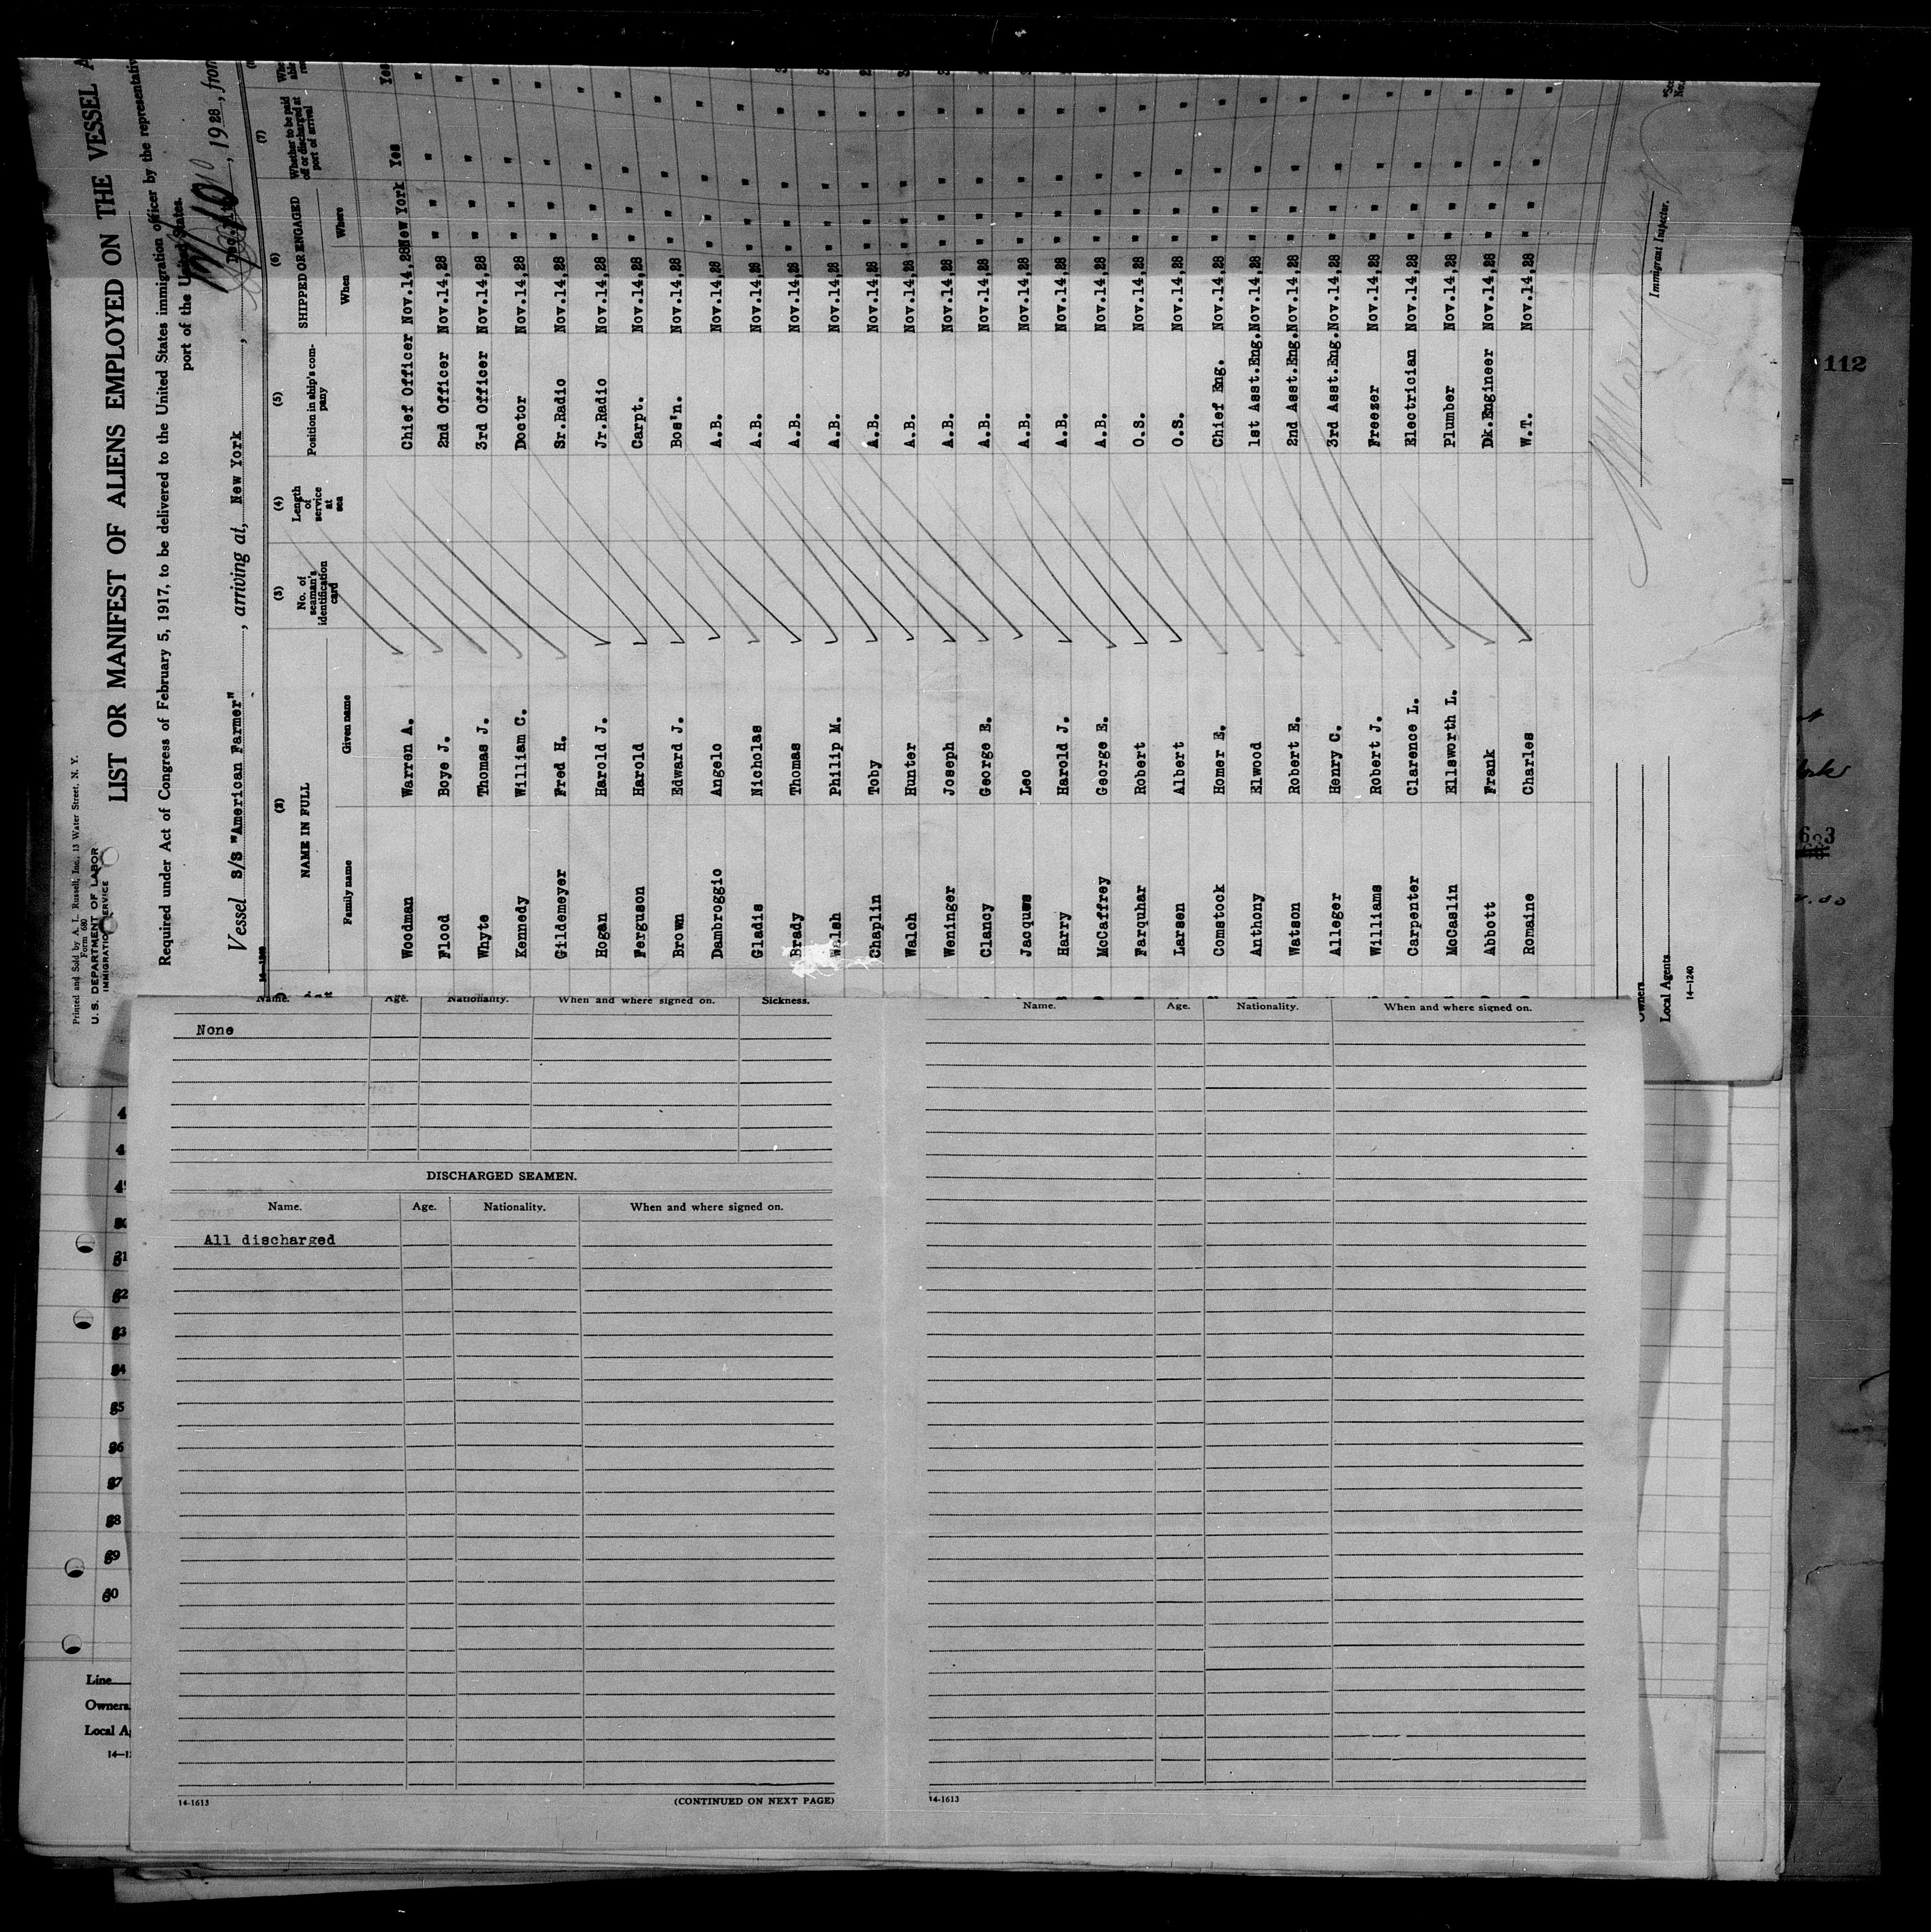 Printed and Sold by A. L. Russell, Inc., 13 Water Street, N. Y.
Form 680
U. S. DEPARTMENT OF LABOR
IMMIGRATION SERVICE
LIST OR MANIFEST OF ALIENS EMPLOYED ON THE VESSEL A
Required under Act of Congress of February 5, 1917, to be delivered to the United States immigration officer by the representativ
port of the United States.
Vessel S/S "American Farmer", arriving at, New York, 1928, from
(2) (3) (4) (5) (6) (7)
NAME IN FULL No. of seaman's identification card Length of service at sea Position in ship's company SHIPPED OR ENGAGED Whether to be paid off or discharged at port of arrival
Family name Given name When Where
Woodman Warren A. Chief Officer Nov.14,28 New York Yes Yes
Flood Boye J. 2nd Officer Nov.14,28 " " " "
Whyte Thomas J. 3rd Officer Nov.14,28 " " " "
Kennedy William C. Doctor Nov.14,28 " " " "
Gildemeyer Fred H. Sr.Radio Nov.14,28 " " " "
Hogan Harold J. Jr.Radio Nov.14,28 " " " "
Ferguson Harold Carpt. Nov.14,28 " " " "
Brown Edward J. Bos'n. Nov.14,28 " " " "
Danbroggio Angelo A.B. Nov.14,28 " " " "
Gladis Nicholas A.B. Nov.14,28 " " " "
Brady Thomas A.B. Nov.14,28 " " " "
Walsh Philip M. A.B. Nov.14,28 " " " "
Chaplin Toby A.B. Nov.14,28 " " " "
Walch Hunter A.B. Nov.14,28 " " " "
Weninger Joseph A.B. Nov.14,28 " " " "
Clancy George E. A.B. Nov.14,28 " " " "
Jacques Leo A.B. Nov.14,28 " " " "
Harry Harold J. A.B. Nov.14,28 " " " "
McCaffrey George E. A.B. Nov.14,28 " " " "
Farquhar Robert O.S. Nov.14,28 " " " "
Larsen Albert O.S. Nov.14,28 " " " "
Comstock Homer E. Chief Eng. Nov.14,28 " " " "
Anthony Elwood 1st Asst.Eng. Nov.14,28 " " " "
Watson Robert E. 2nd Asst.Eng. Nov.14,28 " " " "
Alleger Henry C. 3rd Asst.Eng. Nov.14,28 " " " "
Williams Robert J. Freezer Nov.14,28 " " " "
Carpenter Clarence L. Electrician Nov.14,28 " " " "
McCaslin Ellsworth L. Plumber Nov.14,28 " " " "
Abbott Frank Dk.Engineer Nov.14,28 " " " "
Romaine Charles W.T. Nov.14,28 " " " "
Immigrant Inspector.
Owners
Local Agents
14—1240
112
Name. Age. Nationality. When and where signed on. Sickness.
None
DISCHARGED SEAMEN.
Name. Age. Nationality. When and where signed on.
All discharged
14-1613
(CONTINUED ON NEXT PAGE)
Name. Age. Nationality. When and where signed on.
14-1613
Line
Owners
Local A